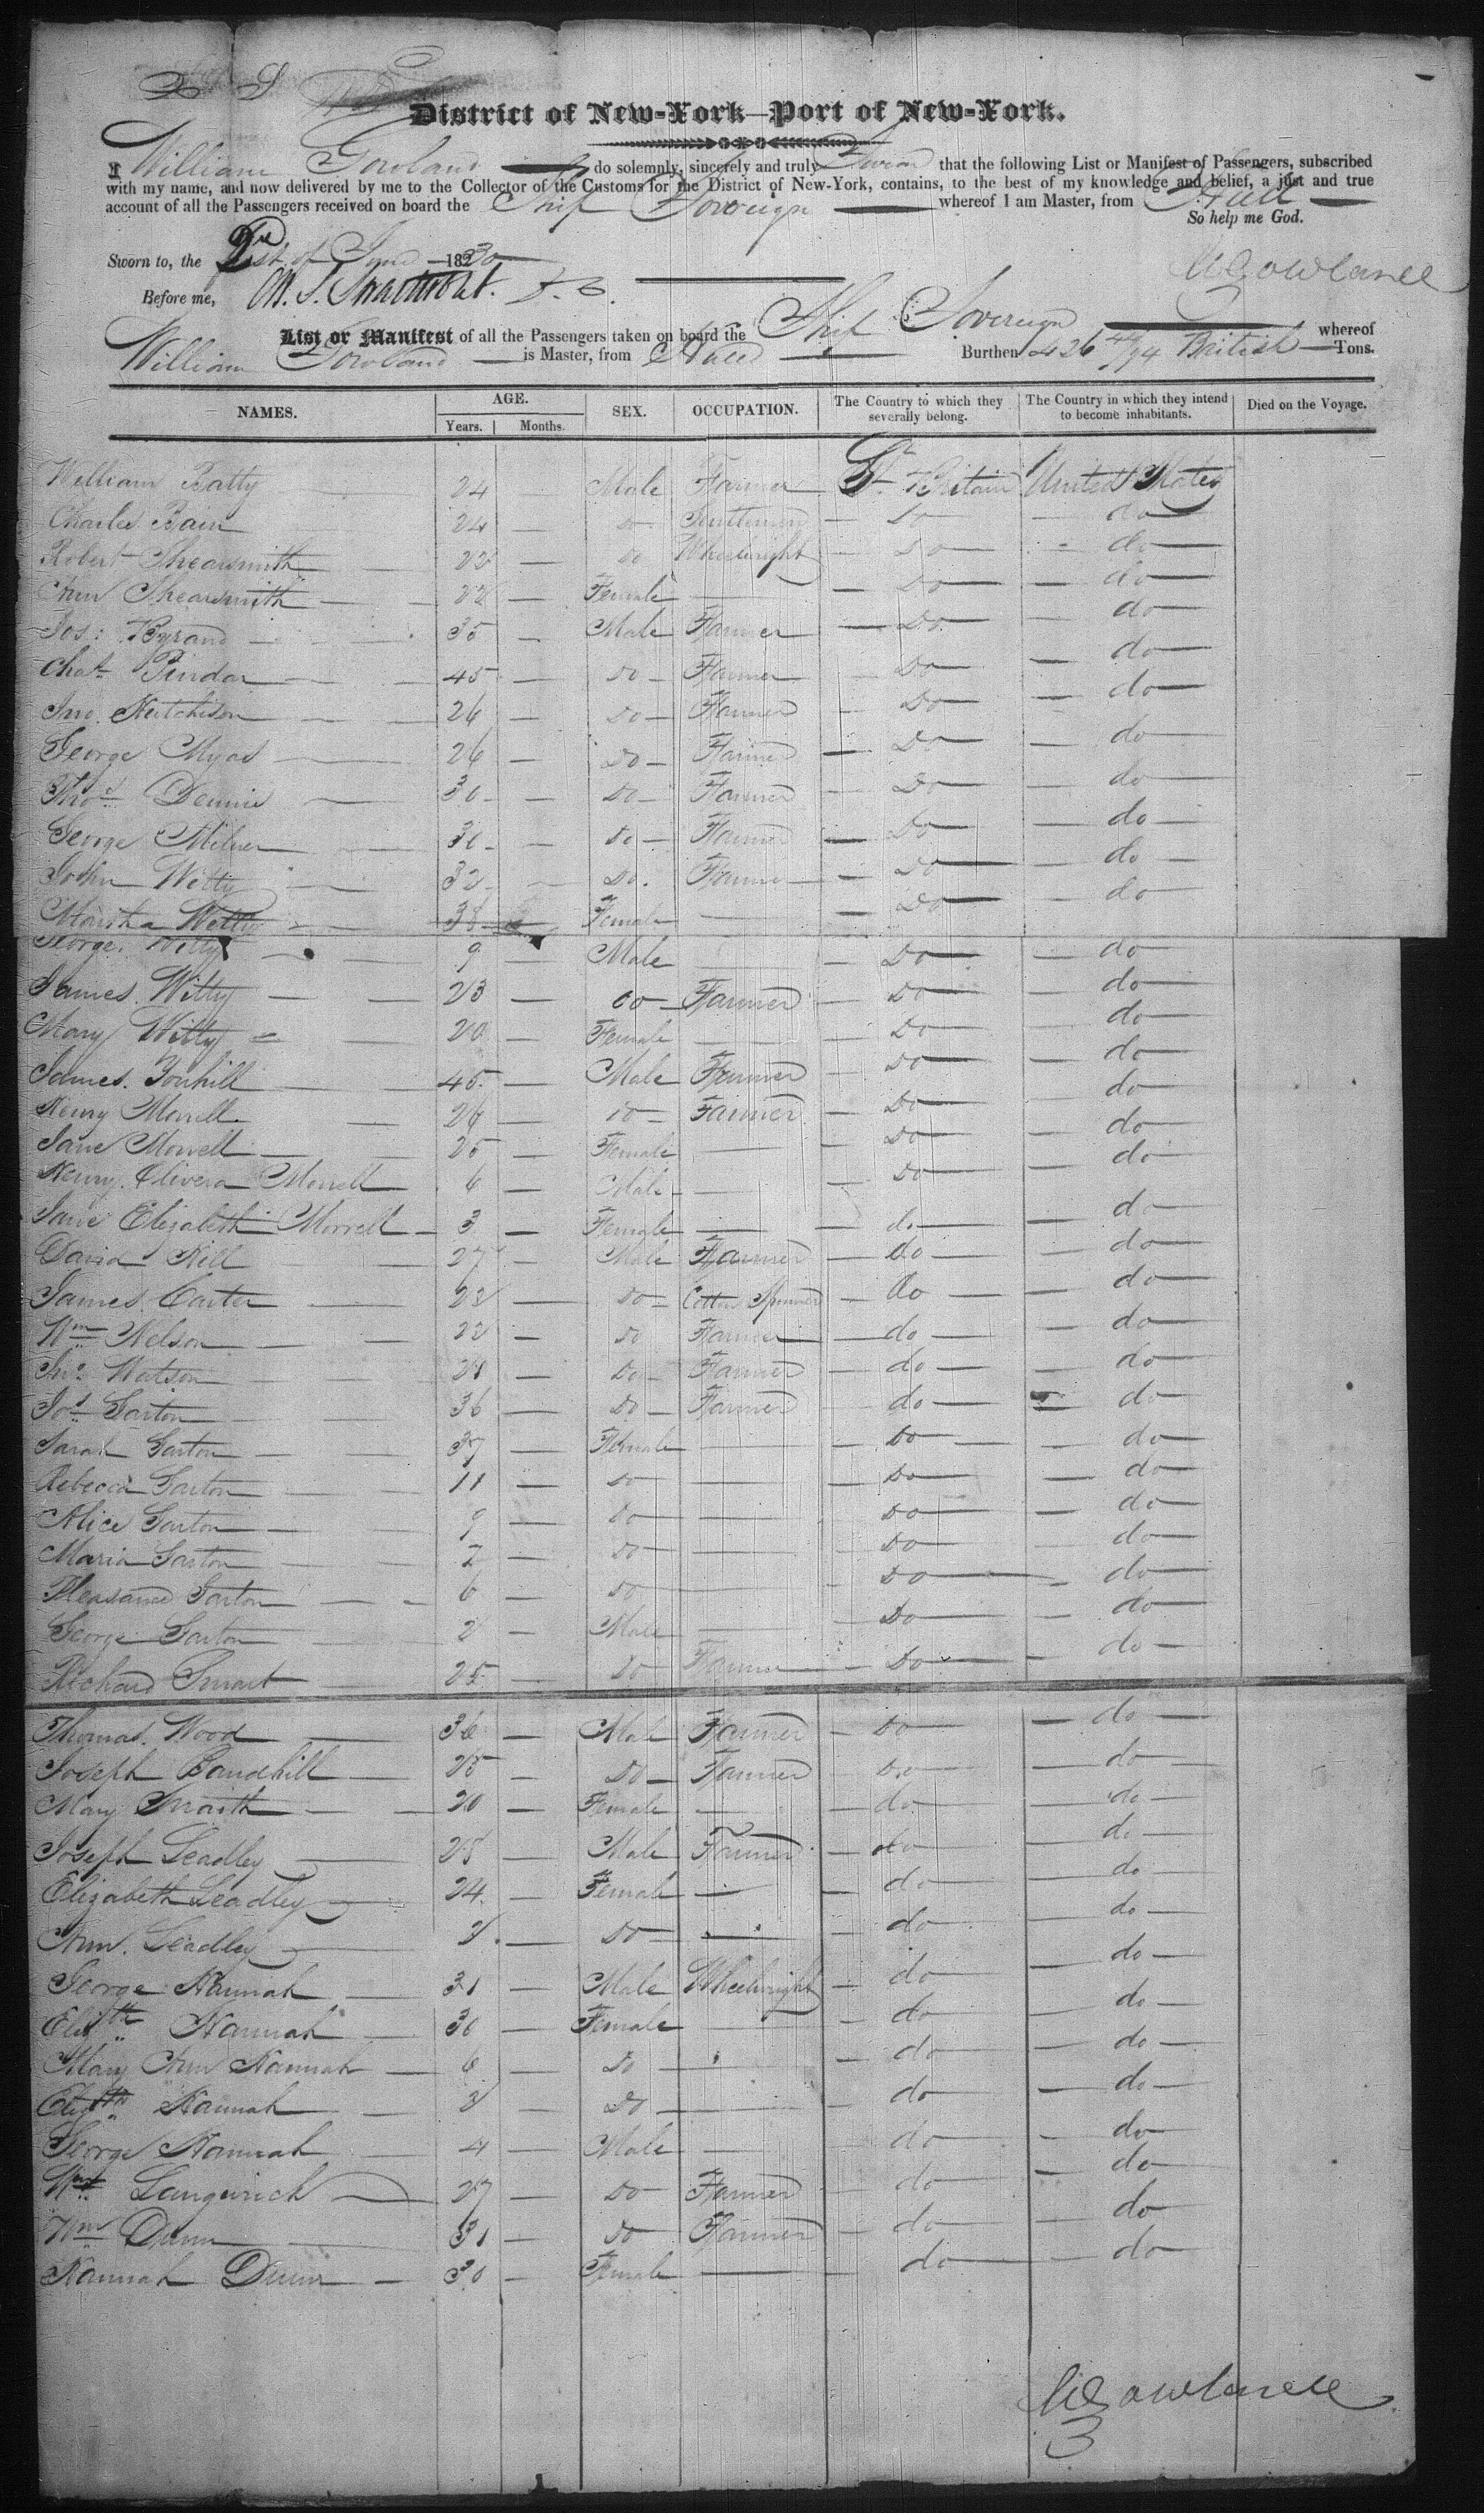 District of New-York—Port of New-York.
I William Gowland do solemnly, sincerely and truly Swear that the following List or Manifest of Passengers, subscribed
with my name, and now delivered by me to the Collector of the Customs for the District of New-York, contains, to the best of my knowledge and belief, a just and true
account of all the Passengers received on board the Ship Sovereign whereof I am Master, from Hull
So help me God.
Sworn to, the of June 1830
WGowland
Before me,
List or Manifest of all the Passengers taken on board the Ship Sovereign whereof
William Gowland is Master, from Hull Burthen 426 44/94 British Tons.
NAMES. AGE. SEX. OCCUPATION. The Country to which they severally belong. The Country in which they intend to become inhabitants. Died on the Voyage.
Years. Months.
William Batty 24 Male Farmer Gt Britain United States
Charles Bain 24 do Gentleman Do do
Robert Shearsmith 22 do Wheelwright Do do
Ann Shearsmith 22 Female Do do
Jos: Byrand 35 Male Farmer Do do
Chas Pindar 45 Do Farmer Do do
Jno. Hutchison 26 Do Farmer Do do
George Myas 26 Do Farmer Do do
Thos Dennis 30 Do Farmer Do do
George Milner 30 Do Farmer Do do
John Witty 32 Do. Farmer Do do
Martha Witty 38 Female Do do
George Witty 9 Male Do do
James Witty 23 do Farmer Do do
Mary Witty 20 Female Do do
James Foxhill 45 Male Farmer Do do
Henry Morrell 26 do Farmer Do do
Jane Morrell 25 Female Do do
Henry Olivera Morrell 6 Male Do do
Jane Elizabeth Morrell 3 Female do do
David Hill 27 Male Farmer do do
James Carter 23 Do Cotton Spinner do do
Wm Nelson 22 Do Farmer do do
Jno Watson 21 Do Farmer do do
Jos Garton 36 Do Farmer do do
Sarah Garton 37 Female Do do
Rebecca Garton 11 Do Do do
Alice Garton 9 Do Do do
Maria Garton 7 Do Do do
Pleasance Garton 6 Do Do do
George Garton 2 Male Do do
Richard Smart 25 Do Farmer Do do
Thomas Wood 36 Male Farmer Do do
Joseph Caudhill 25 Do Farmer Do do
Mary Smaith 20 Female do do
Joseph Leadley 25 Male Farmer do do
Elizabeth Leadley 24 Female do do
Ann Leadley 2 Do do do
George Hannah 31 Male Wheelwright do do
Elizth Hannah 30 Female do do
Mary Ann Hannah 6 Do do do
Elizth Hannah 2 Do do do
George Hannah 4 Male do do
Wm Langwich 27 Do Farmer do do
Wm Dunn 31 Do Farmer do do
Hannah Dunn 30 Female do do
WGowland
3